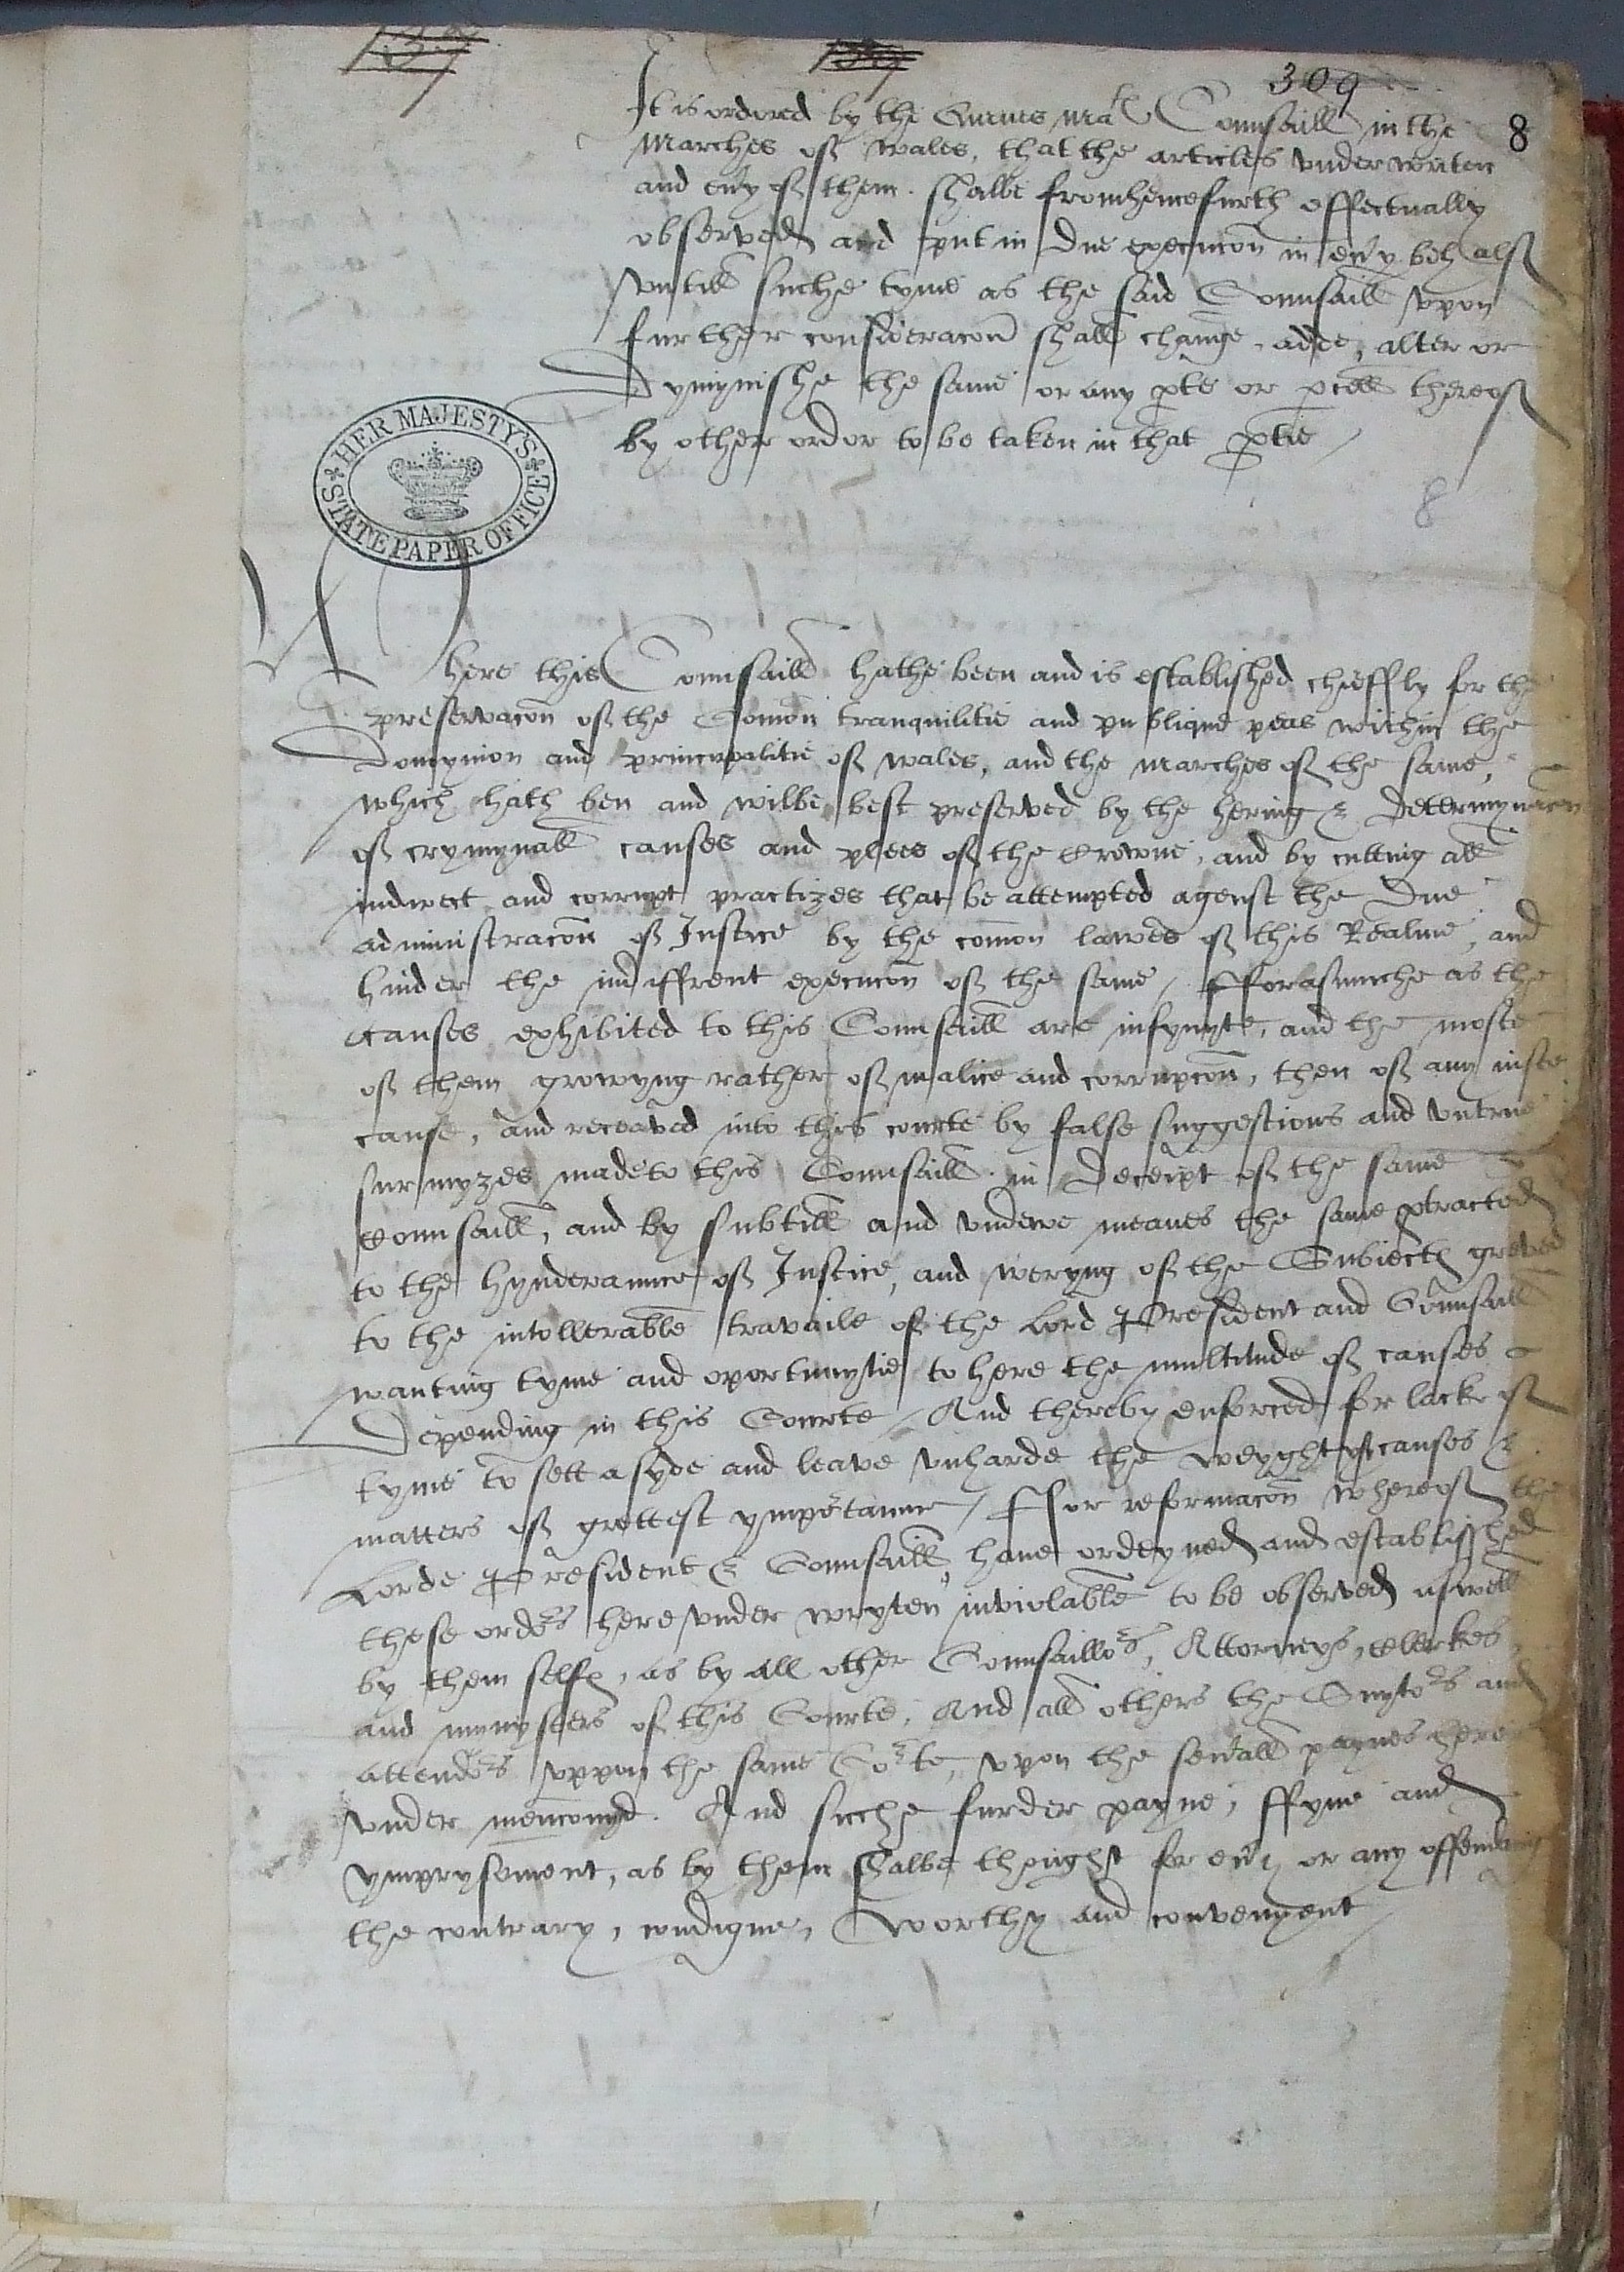 137 137 309
8
It is ordered by the Quenes Matie Counsaill in the
Marches of wales, that the articles vnder writen
and eu'y of them. shalbe fromhencefurth effectually
observed and put in due execucōn in eu'y behalf
vntill suche tyme as the said Counsaill vpon
further consideracon shall chainge, adde, alter or
Dymynishe the same or any pte or pcell thereof
by other order to be taken in that ptie
HER MAJESTY'S STATE PAPER OFFICE
8
Where this Counsaill hathe been and is established chieffly for the
preservacōn of the Comōn tranquilitie and publique peas within the
Domynion and principalitie of wales, and the marches of the same,
which hath ben and wilbe best preserved by the hering & determynacon
of crymynall causes and plees of the Crowne, and by cutting all
indirect and corrupt practizes that be attempted agenst the due
administracōn of Justice by the comōn lawes of this Realme, and
hinder the indiffrent execucōn of the same / fforasmuche as the
causes exhibited to this Counsaill are infynyte, and the moste
of them growyng rather of malice and corrupcōn, then of any iuste
cause, and receaved into this courte by false suggestions and vntrue
surmyzes made to this Counsaill in deceipt of the same
Counsaill, and by subtill and vndewe meanes the same ptracted
to the hynderaunce of Justice, and weryng of the Subiectes greved
to the intollerable travaile of the Lord President and Counsaill
wanting tyme and oportunytie to here the multitude of causes
Depending in this Courte / And thereby enforced for lacke of
tyme to sett asyde and leave vnharde the weyghtyst causes &
matters of grettest ympotaunce / ffor reformacōn whereof the
Lorde President & Counsaill, haue ordeyned and establisshed
these ordrs here vnder wryten inviolable to be observed aswell
by them selfes, as by all other Counsaillors, Attorneys, Clerkes,
and mynysters of this Courte, And all others the Suytors and
attendrs vppon the same Corte, vpon the seu'all paynes here
vnder menconyd. And suche furder payne, ffyne and
ymprysoment, as by them shalbe thought for eu'y or any offending
the contrary, condigne, worthy and convenyent /